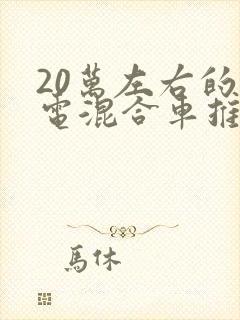 20萬左右的
電混合車推
馬休